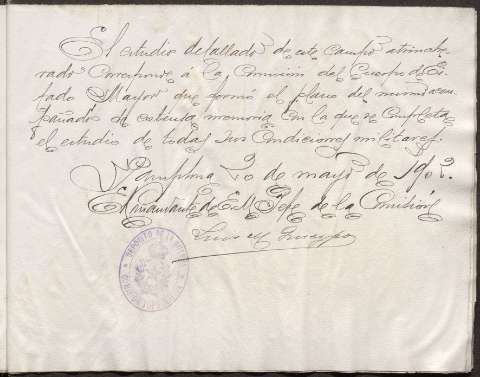 El estudio detallado de este campo atrinche-
rado corresponde á la Comisión del Cuerpo de Es-
tado Mayor que formó el plano del mismo acom-
pañado de extensa memoria en la que se completa
el estudio de todas sus condiciones militares.
Pamplona 20 de mayo de 1902.
El Comandante de E. M. Jefe de la Comisión
Luis
DEPOSITO DE LA